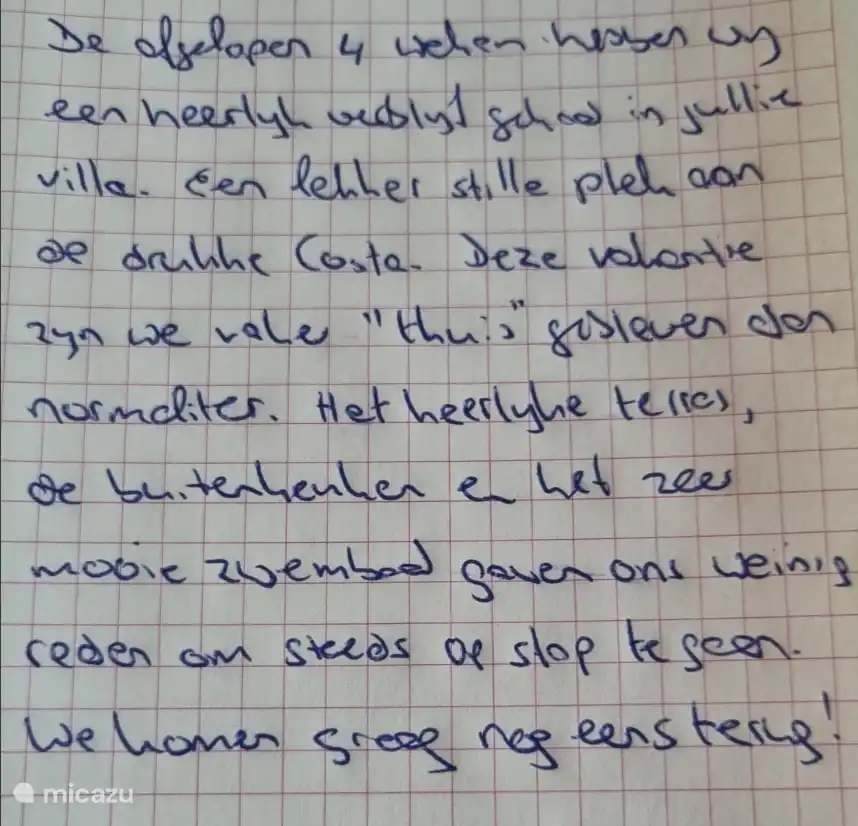 De afgelopen 4 weken hebben wij
een heerlijk verblijf gehad in jullie
villa. Een lekker stille plek aan
de drukke Costa. Deze vakantie
zijn we vaker "thuis" gebleven dan
normaliter. Het heerlijke terras,
de buitenkeuken en het zeer
mooie zwembad gaven ons weinig
reden om steeds op stap te gaan.
We komen graag nog eens terug!
micazu